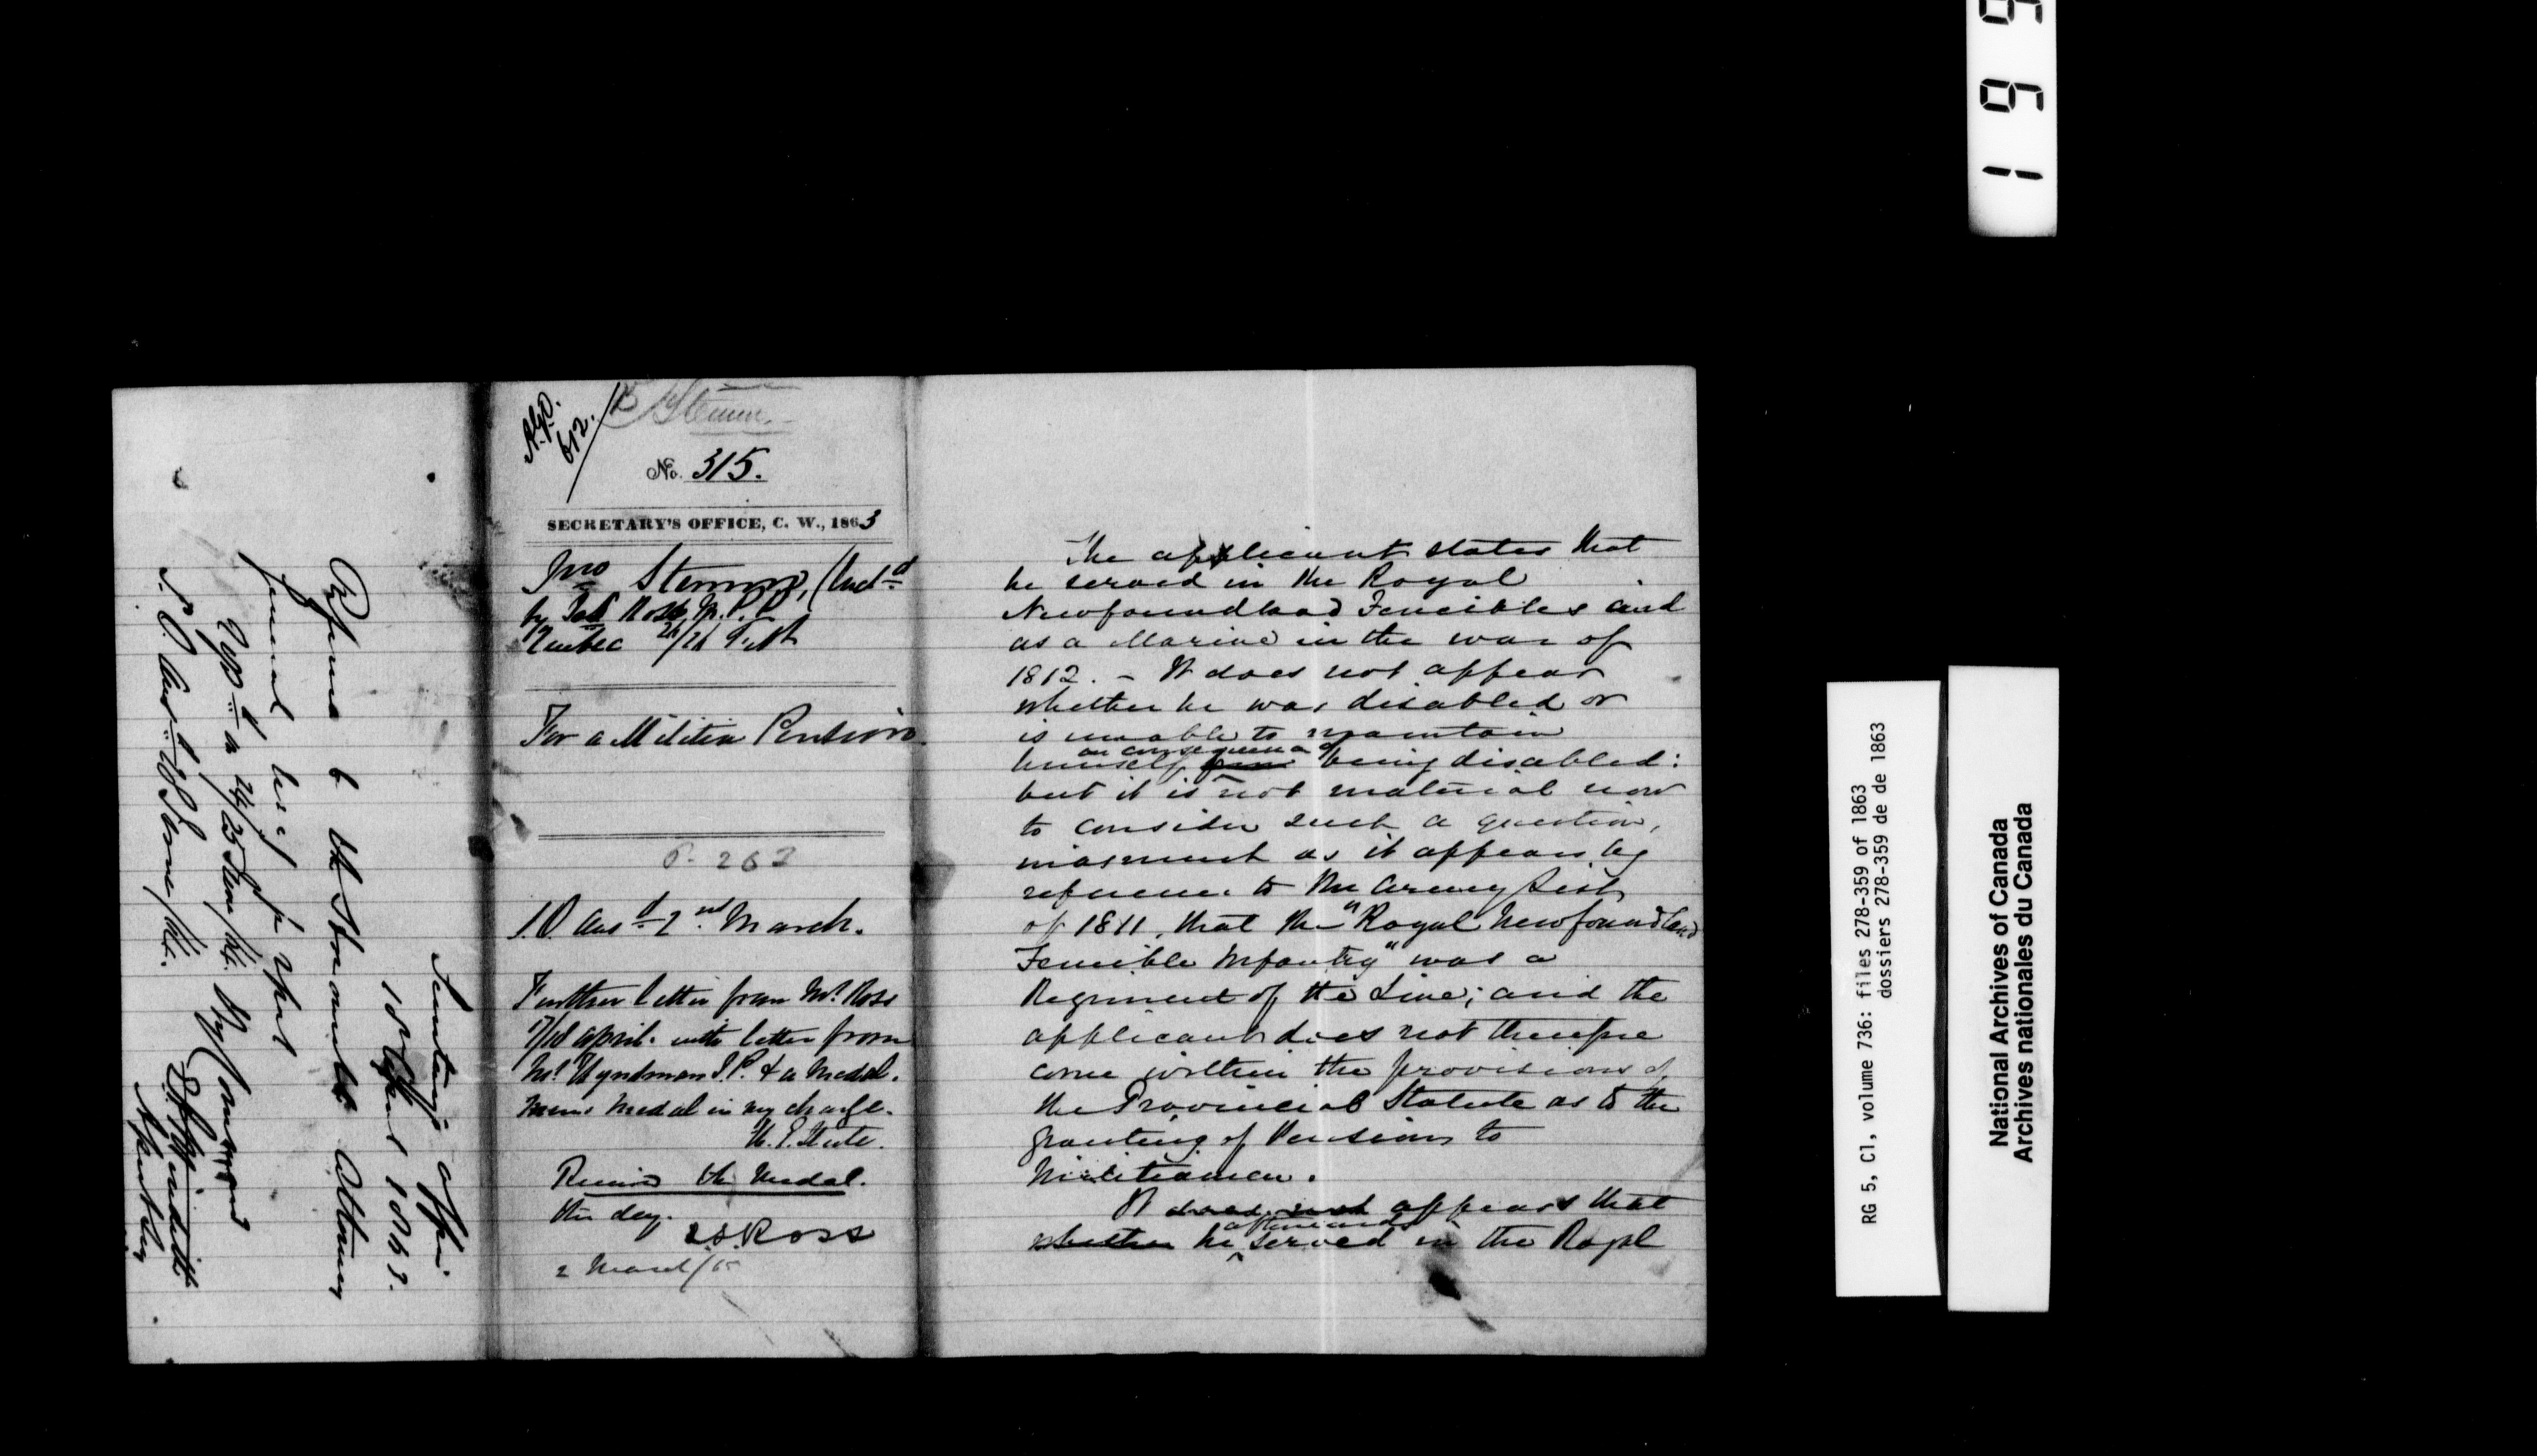 Secretary's Office
18th April 1863.
Referred to the Honorable Attorney
General West for report
By Command
Assistant Secy
A.G.O.
612.
No. 315.
SECRETARY'S OFFICE, C. W., 1863
Jno Stemm, (Encd
by Ross M.P.P.
Quebec 26/26 Feb
For a Militia Pension.
P. 263
2nd March.
Further letter from Mr Ross
17/18 April. with letter from
Mr Hyndman J.P. & a Medal.
Mem: Medal in my charge.
Received the Medal.
this day.
Ross
2 March/65
The applicant states that
he served in the Royal
Newfoundland Fencibles and
as a Marine in the war of
1812. - It does not appear
whether he was disabled or
is unable to maintain
himself from in consequence of being disabled:
but it is not material now
to consider such a question,
inasmuch as it appears by
reference to the Army List
of 1811, that the "Royal Newfoundland
Fencible Infantry" was a
Regiment of the Line; and the
applicant does not therefore
come within the provisions of
the Provincial Statute as to the
granting of Pensions to
Militiamen.
It does not appears that
whether he afterwards served in the Royal
1 9 9
RG 5, C1, volume 736: files 278-359 of 1863
dossiers 278-359 de de 1863
National Archives of Canada
Archives nationales du Canada